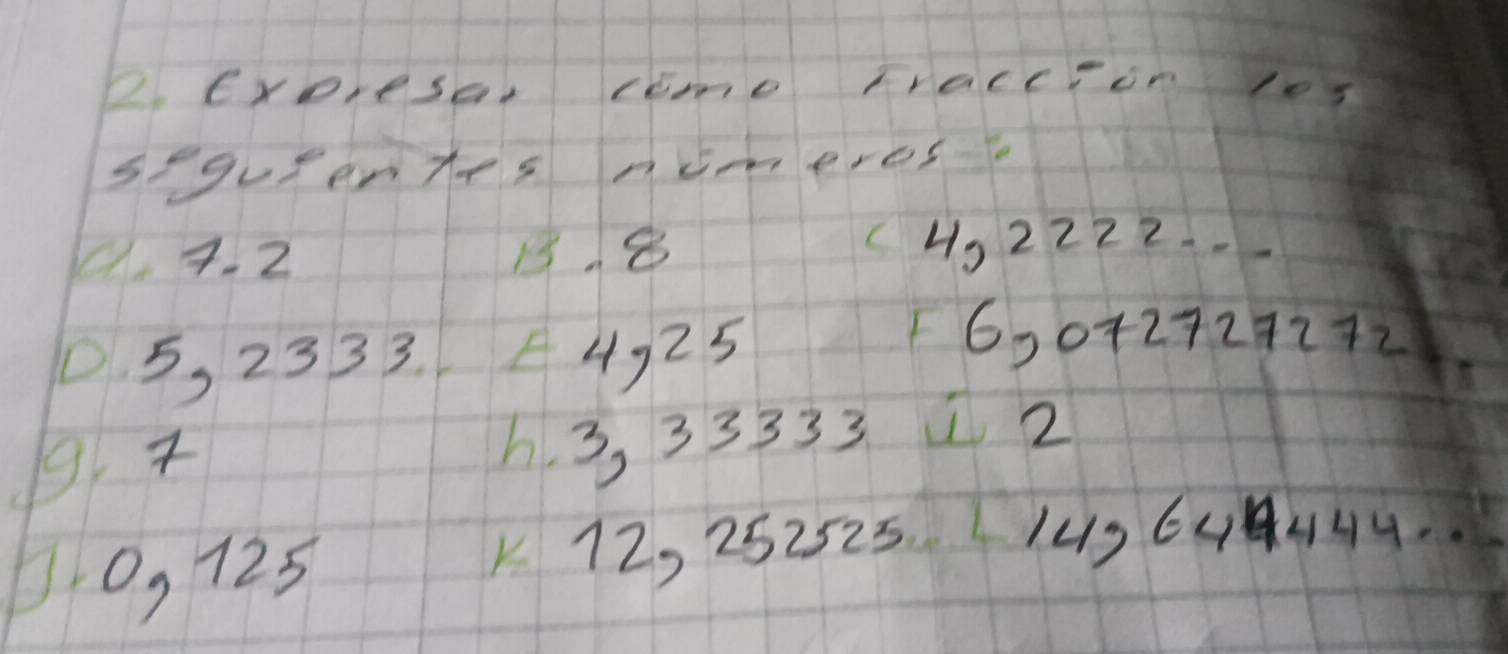 2. Expresar cómo Fracción los
siguientes números:
a. 7.2 B. 8 C 4,2222...
D. 5,2333.. E 4,25 F 6,072727272..
g. 7 h. 3,33333 i 2
J. 0,125 K 12,252525.. L 14,644444...